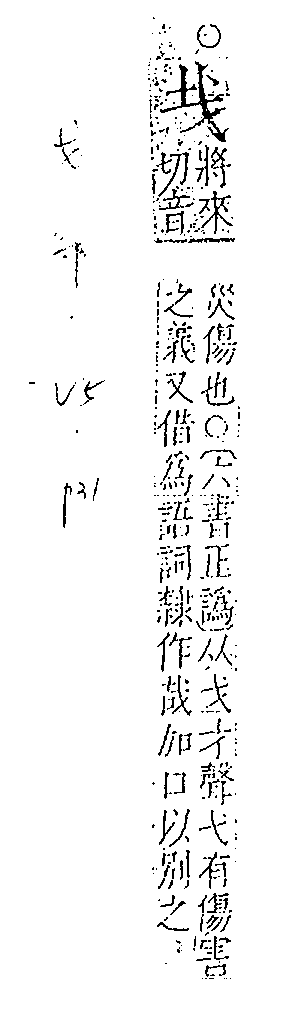 ○
𢦏
將來
切音
災傷也○(六書正譌)从戈才聲弋有傷害
之義又借爲語詞隸作哉加口以別之
戈部.V5.p31